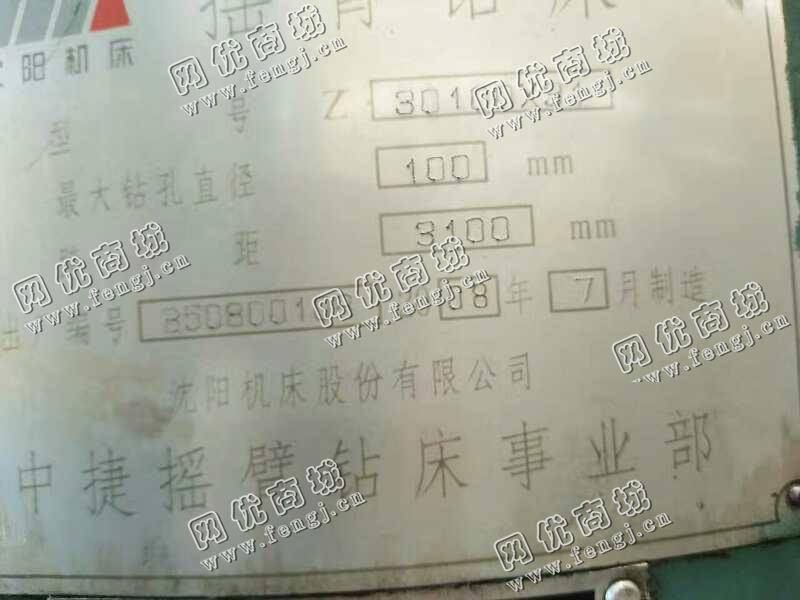 摇臂钻床
沈阳机床
型号 Z 3010
最大钻孔直径 100 mm
跨距 3100 mm
编号 8508001 08年 7月制造
沈阳机床股份有限公司
中捷摇臂钻床事业部
网优商城
www.fengj.cn
网优商城
www.fengj.cn
网优商城
www.fengj.cn
网优商城
www.fengj.cn
网优商城
www.fengj.cn
网优商城
www.fengj.cn
网优商城
www.fengj.cn
网优商城
www.fengj.cn